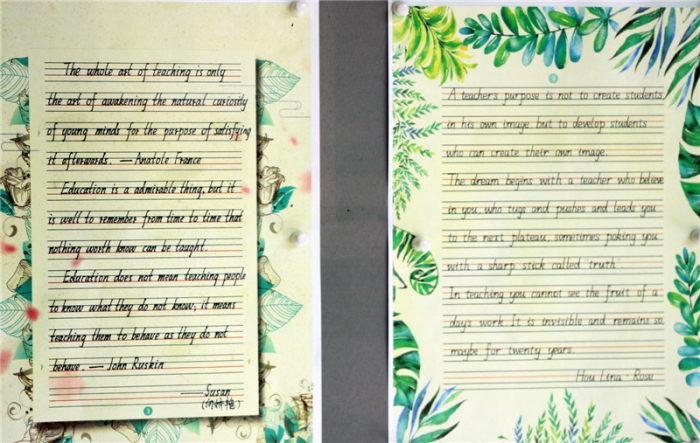 The whole art of teaching is only
the art of awakening the natural curiosity
of young minds for the purpose of satisfying
it afterwards. — Anatole France
Education is a admirable thing, but it
is well to remember from time to time that
nothing worth know can be taught.
Education does not mean teaching people
to know what they do not know; it means
teaching them to behave as they do not
behave. — John Ruskin
—Susan
A teacher's purpose is not to create students
in his own image but to develop students
who can create their own image.
The dream begins with a teacher who believe
in you, who tugs and pushes and leads you
to the next plateau, sometimes poking you
with a sharp stick called truth
In teaching you cannot see the fruit of a
day's work. It is invisible and remains so,
maybe for twenty years.
Hou Lina - Rose